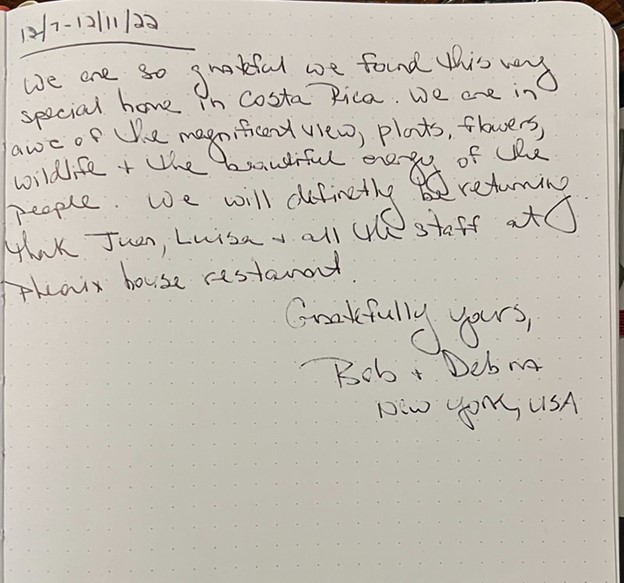 12/7-12/11/22
We are so grateful we found this very
special home in Costa Rica. We are in
awe of the magnificent view, plants, flowers,
wildlife + the beautiful energy of the
people. We will definetly be returning
thank Juan, Luisa + all the staff at
Pheonix house restarant.
Gratefully yours,
Bob + Debra
New York, USA